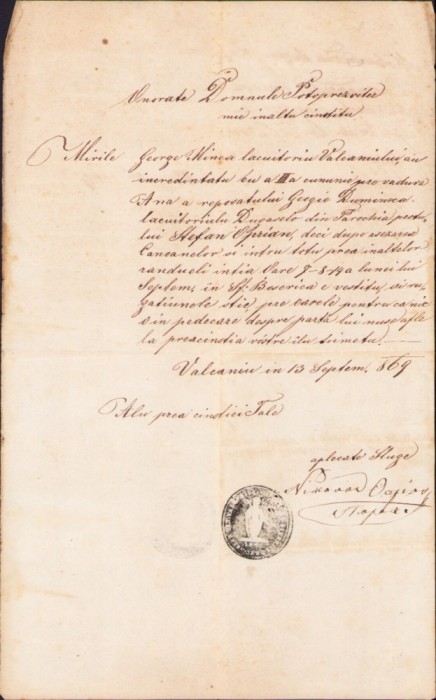 Onorate Domnule Protoprezviter
mie inaltu cinstitu
Mirile George Minca lacuitoriu Valcaniului, au
incredintatu cu a IIa cununii pre vaduva
Ana a reposatului George Duminica
lacuitoriulu Dugaselor din Parochia preotu
lui Stefan Oprian, deci dupo
Canoanelor si intru totu prea inaltelor
randueli intia Oare 7-8-14a lunii lui
Septem. in Sf. Beserica e vestitu, si ru
gatiunele stie, pre carele pentru ca nic
e in pedecare despre parta lui nu se afle
la preacinstia vostre ilu trimetu.
Valcaniu in 13 Septem. 869
Alu prea cinstiei Tale
aplecate Sluge